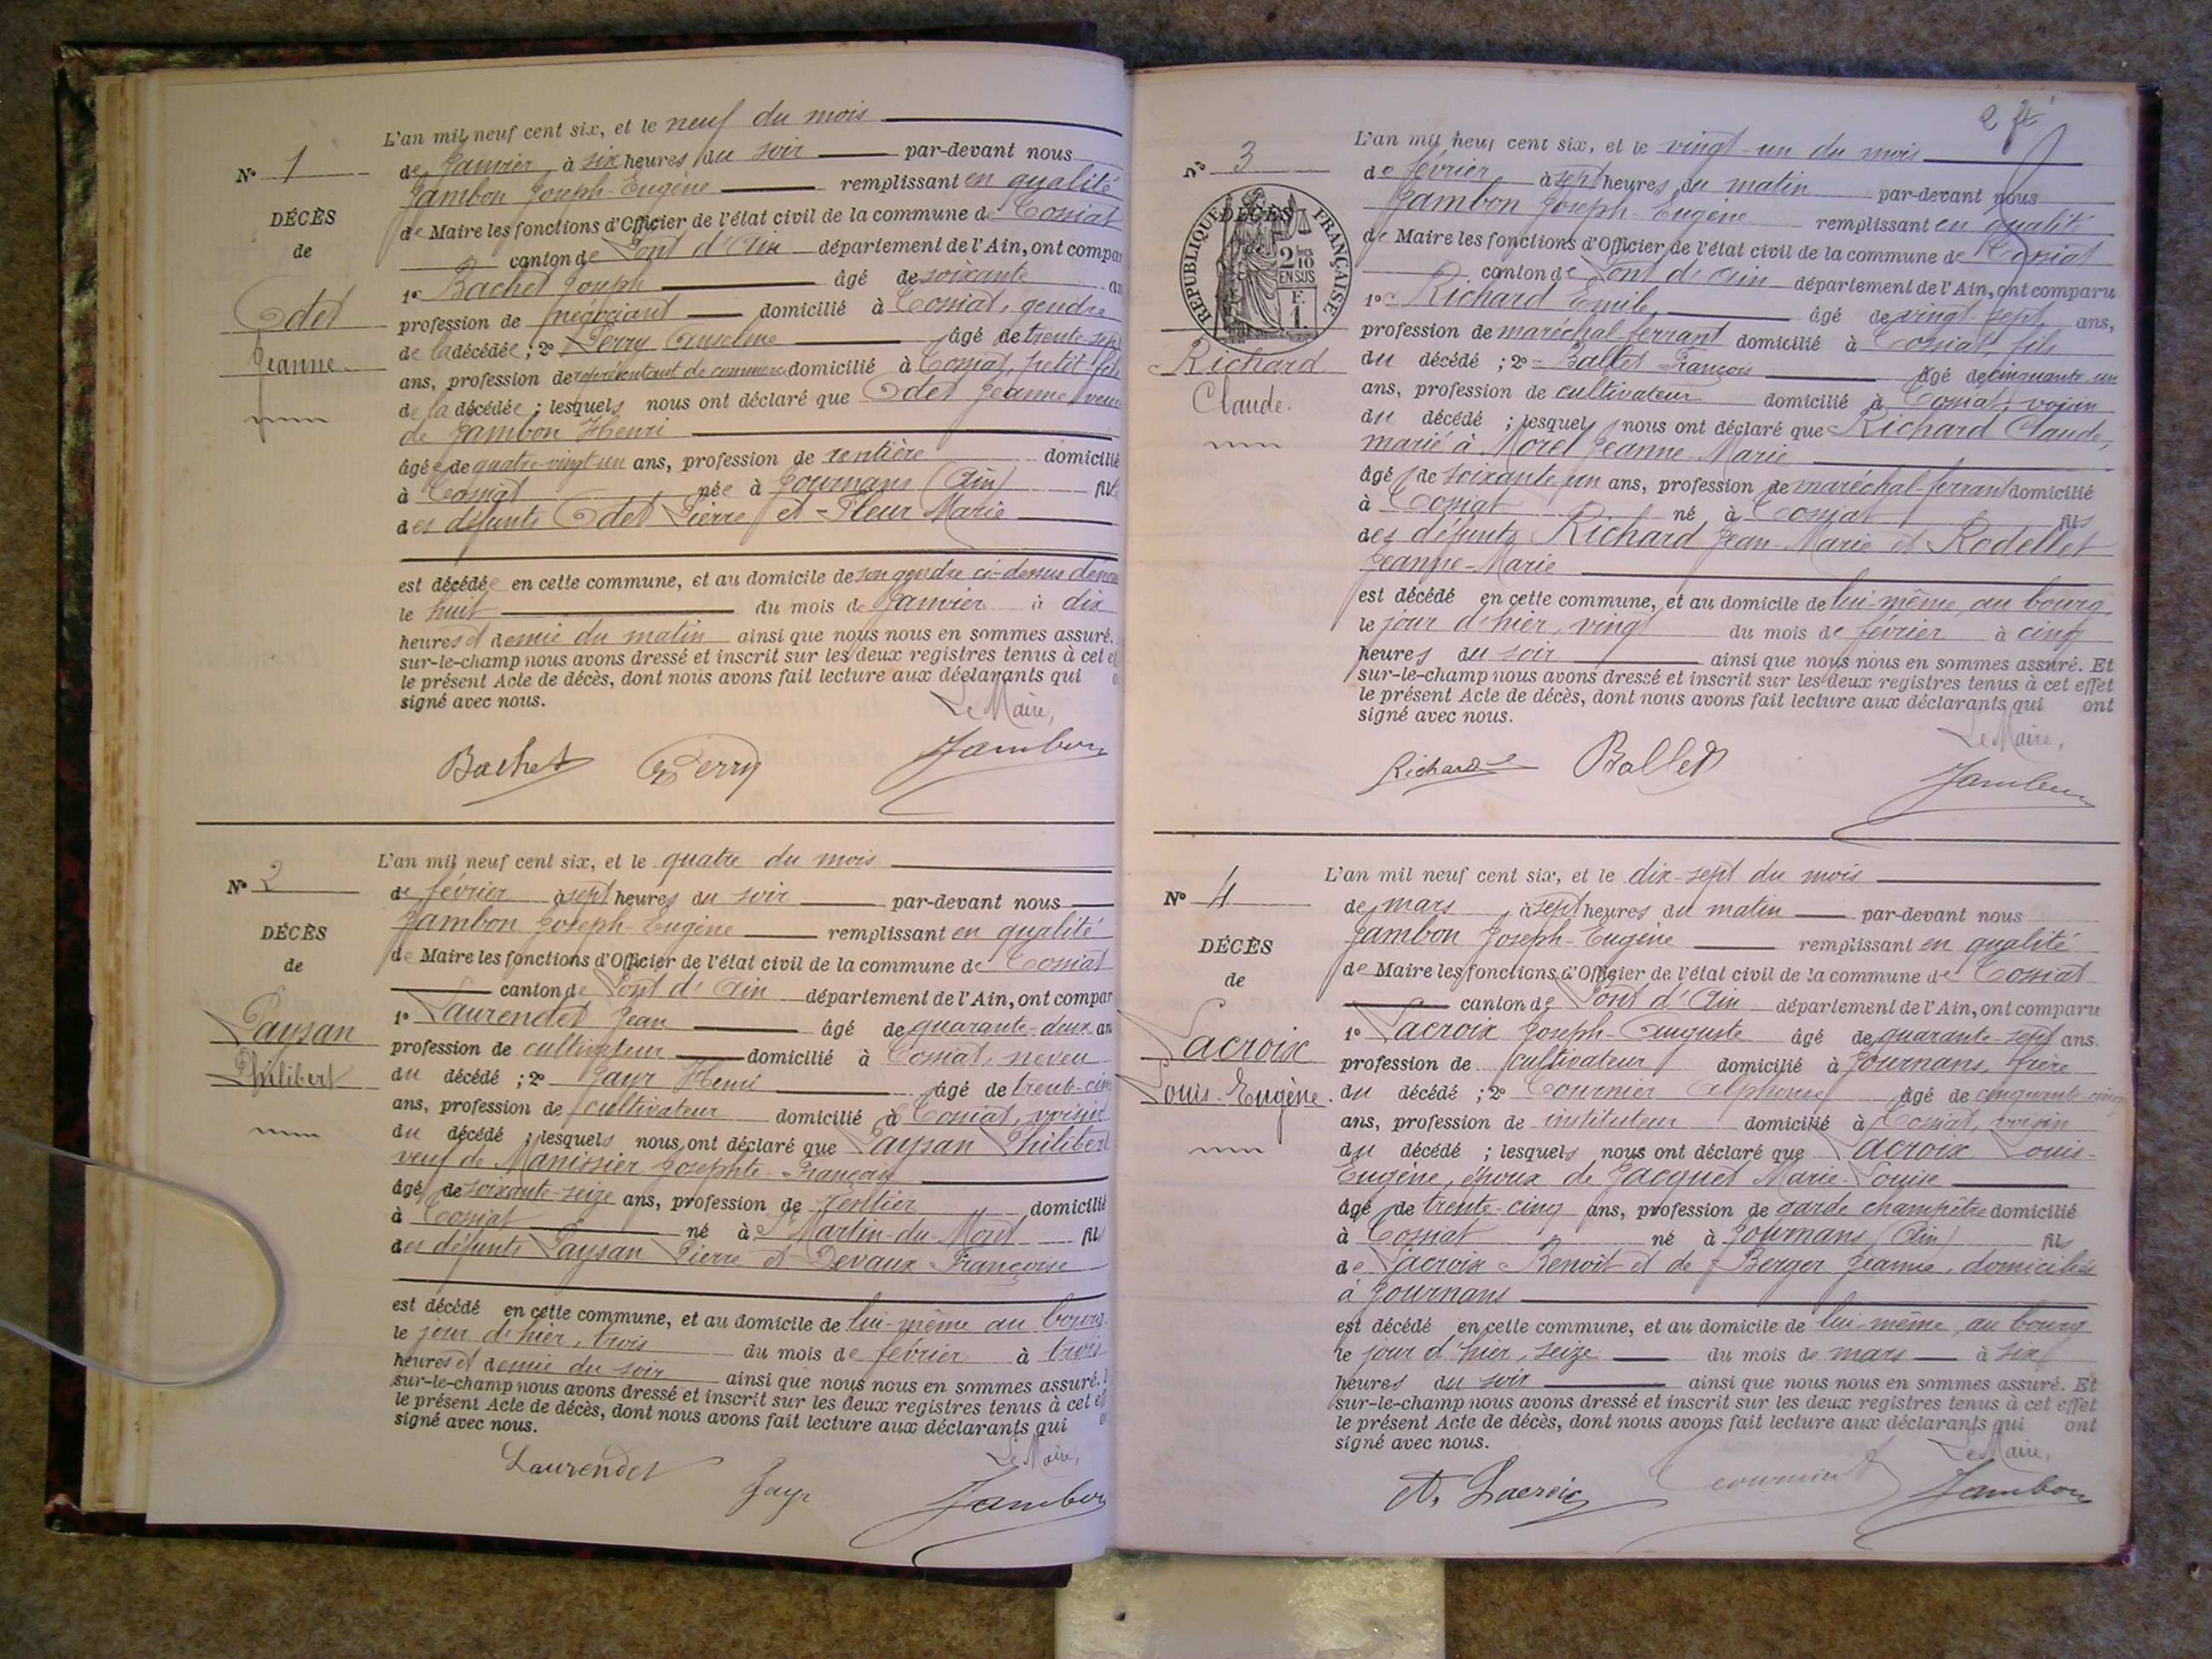 N° 1
DÉCÈS
de
Odet
Jeanne
L'an mil neuf cent six, et le neuf du mois
de Janvier à six heures du soir par-devant nous
Jambon Joseph-Eugène remplissant en qualité
de Maire les fonctions d'Officier de l'état civil de la commune de Tossiat
canton de Pont d'Ain département de l'Ain, ont compa
1° Bachet Joseph âgé de soixante an
profession de négociant domicilié à Tossiat, gendre
de la décédée ; 2° Perry Anselme âgé de trente sept
ans, profession de représentant de commerce domicilié à Tossiat, petit-fils
de la décédée ; lesquels nous ont déclaré que Odet Jeanne veuve
de Jambon Henri
âgée de quatre-vingt un ans, profession de rentière domicilié
à Tossiat née à Journans (Ain) fille
des défunts Odet Pierre et Fleur Marie
est décédée en cette commune, et au domicile de son gendre ci-dessus dénom
le huit du mois de Janvier à dix
heures et demie du matin ainsi que nous nous en sommes assuré.
sur-le-champ nous avons dressé et inscrit sur les deux registres tenus à cet ef
le présent Acte de décès, dont nous avons fait lecture aux déclarants qui o
signé avec nous.
Le Maire,
Bachet Perry Jambon
N° 2
DÉCÈS
de
Paysan
Philibert
L'an mil neuf cent six, et le quatre du mois
de février à sept heures du soir par-devant nous
Jambon Joseph-Eugène remplissant en qualité
de Maire les fonctions d'Officier de l'état civil de la commune de Tossiat
canton de Pont d'Ain département de l'Ain, ont compar
1° Laurendet Jean âgé de quarante-deux an
profession de cultivateur domicilié à Tossiat, neveu
du décédé ; 2° Jayr Henri âgé de trente-cinq
ans, profession de cultivateur domicilié à Tossiat, voisin
du décédé ; lesquels nous ont déclaré que Paysan Philibert
veuf de Manissier Josephte-Françoise
âgé de soixante-seize ans, profession de rentier domicilié
à Tossiat né à St Martin-du-Mont fils
des défunts Paysan Pierre et Devaux Françoise
est décédé en cette commune, et au domicile de lui-même au bourg
le jour d'hier, trois du mois de février à trois
heures et demie du soir ainsi que nous nous en sommes assuré.
sur-le-champ nous avons dressé et inscrit sur les deux registres tenus à cet ef
le présent Acte de décès, dont nous avons fait lecture aux déclarants qui o
signé avec nous.
Le Maire,
Laurendet Jayr Jambon
N° 3
RÉPUBLIQUE FRANÇAISE
DÉCÈS
de
2 10
EN SUS
F.
1.
Richard
Claude.
L'an mil neuf cent six, et le vingt-un du mois
de février à sept heures du matin par-devant nous
Jambon Joseph-Eugène remplissant en qualité
de Maire les fonctions d'Officier de l'état civil de la commune de Tossiat
canton de Pont d'Ain département de l'Ain, ont comparu
1° Richard Emile, âgé de vingt-sept ans,
profession de maréchal-ferrant domicilié à Tossiat, fils
du décédé ; 2° Ballet François âgé de cinquante un
ans, profession de cultivateur domicilié à Tossiat, voisin
du décédé ; lesquels nous ont déclaré que Richard Claude,
marié à Morel Jeanne-Marie
âgé de soixante un ans, profession de maréchal-ferrant domicilié
à Tossiat né à Tossiat fils
des défunts Richard Jean-Marie et Rodellet
Jeanne-Marie
est décédé en cette commune, et au domicile de lui-même, au bourg
le jour d'hier, vingt du mois de février à cinq
heures du soir ainsi que nous nous en sommes assuré. Et
sur-le-champ nous avons dressé et inscrit sur les deux registres tenus à cet effet
le présent Acte de décès, dont nous avons fait lecture aux déclarants qui ont
signé avec nous.
Le Maire,
Richard Ballet Jambon
N° 4
DÉCÈS
de
Lacroix
Louis-Eugène.
L'an mil neuf cent six, et le dix-sept du mois
de mars à sept heures du matin par-devant nous
Jambon Joseph-Eugène remplissant en qualité
de Maire les fonctions d'Officier de l'état civil de la commune de Tossiat
canton de Pont d'Ain département de l'Ain, ont comparu
1° Lacroix Joseph-Auguste âgé de quarante-sept ans.
profession de cultivateur domicilié à Journans, frère
du décédé ; 2° Tournier Alphonse âgé de cinquante-cinq
ans, profession de instituteur domicilié à Tossiat, voisin
du décédé ; lesquels nous ont déclaré que Lacroix Louis-
Eugène, époux de Jacquet Marie-Louise
âgé de trente-cinq ans, profession de garde champêtre domicilié
à Tossiat né à Journans (Ain) fils
de Lacroix Benoît et de Berger Jeanne, domiciliés
à Journans
est décédé en cette commune, et au domicile de lui-même, au bourg
le jour d'hier, seize du mois de mars à six
heures du soir ainsi que nous nous en sommes assuré. Et
sur-le-champ nous avons dressé et inscrit sur les deux registres tenus à cet effet
le présent Acte de décès, dont nous avons fait lecture aux déclarants qui ont
signé avec nous.
Le Maire,
A. Lacroix Tournier Jambon